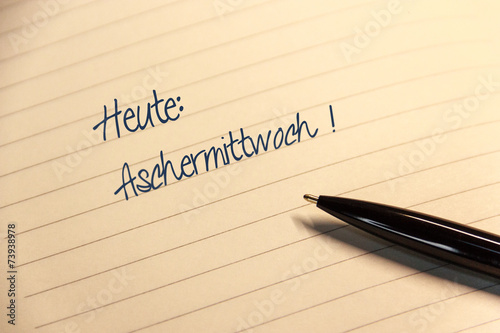 Heute:
Aschermittwoch !
73938978